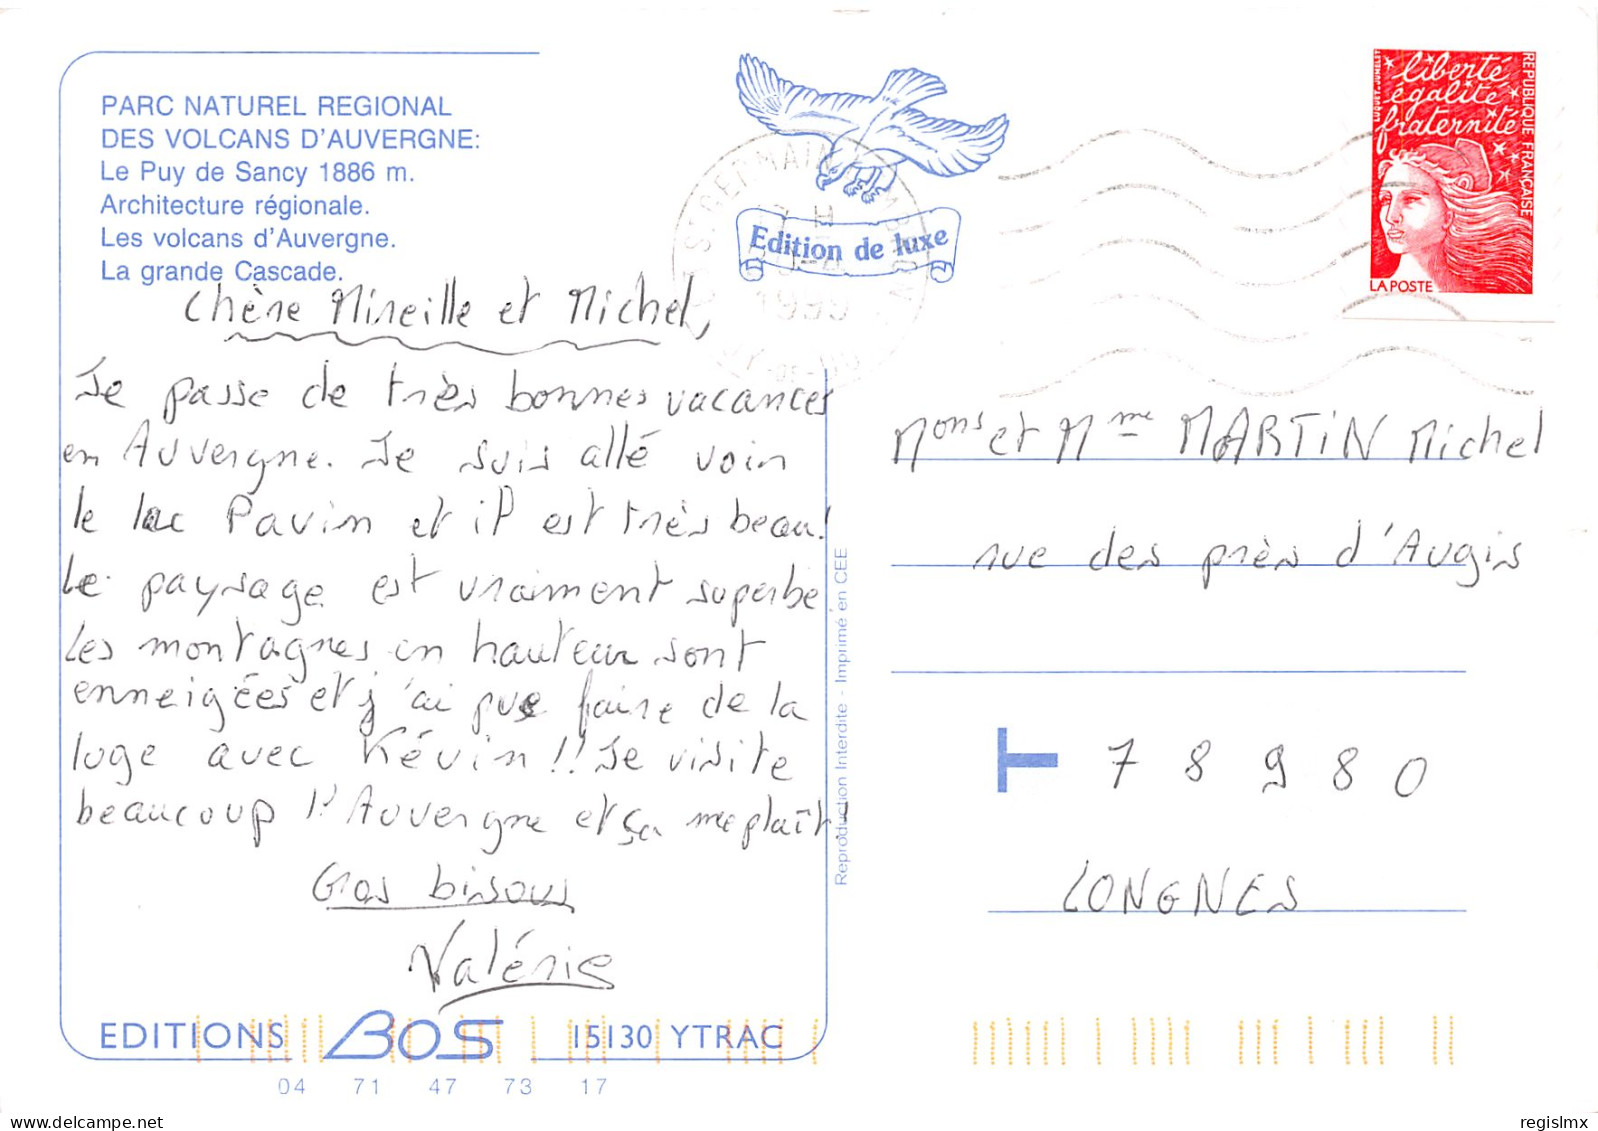 PARC NATUREL REGIONAL
DES VOLCANS D'AUVERGNE:
Le Puy de Sancy 1886 m.
Architecture régionale.
Les volcans d'Auvergne.
La grande Cascade.
Edition de luxe
ST GERMAIN
1999
liberté
égalité
fraternité
REPUBLIQUE FRANÇAISE
LA POSTE
Chère Mireille et Michel,
Je passe de très bonnes vacances
en Auvergne. Je suis allé voir
le lac Pavin et il est très beau!
Le paysage est vraiment superbe
Les montagnes en hauteur sont
enneigées et j'ai pue faire de la
luge avec Kévin!! Je visite
beaucoup l'Auvergne et ça me plaît!
Gros bisous
Valérie
Mons et Mme MARTIN Michel
rue des près d'Augis
T 78980
LONGNES
Reproduction Interdite - Imprimé en CEE
EDITIONS BOS 15130 YTRAC
04 71 47 73 17
regislmx